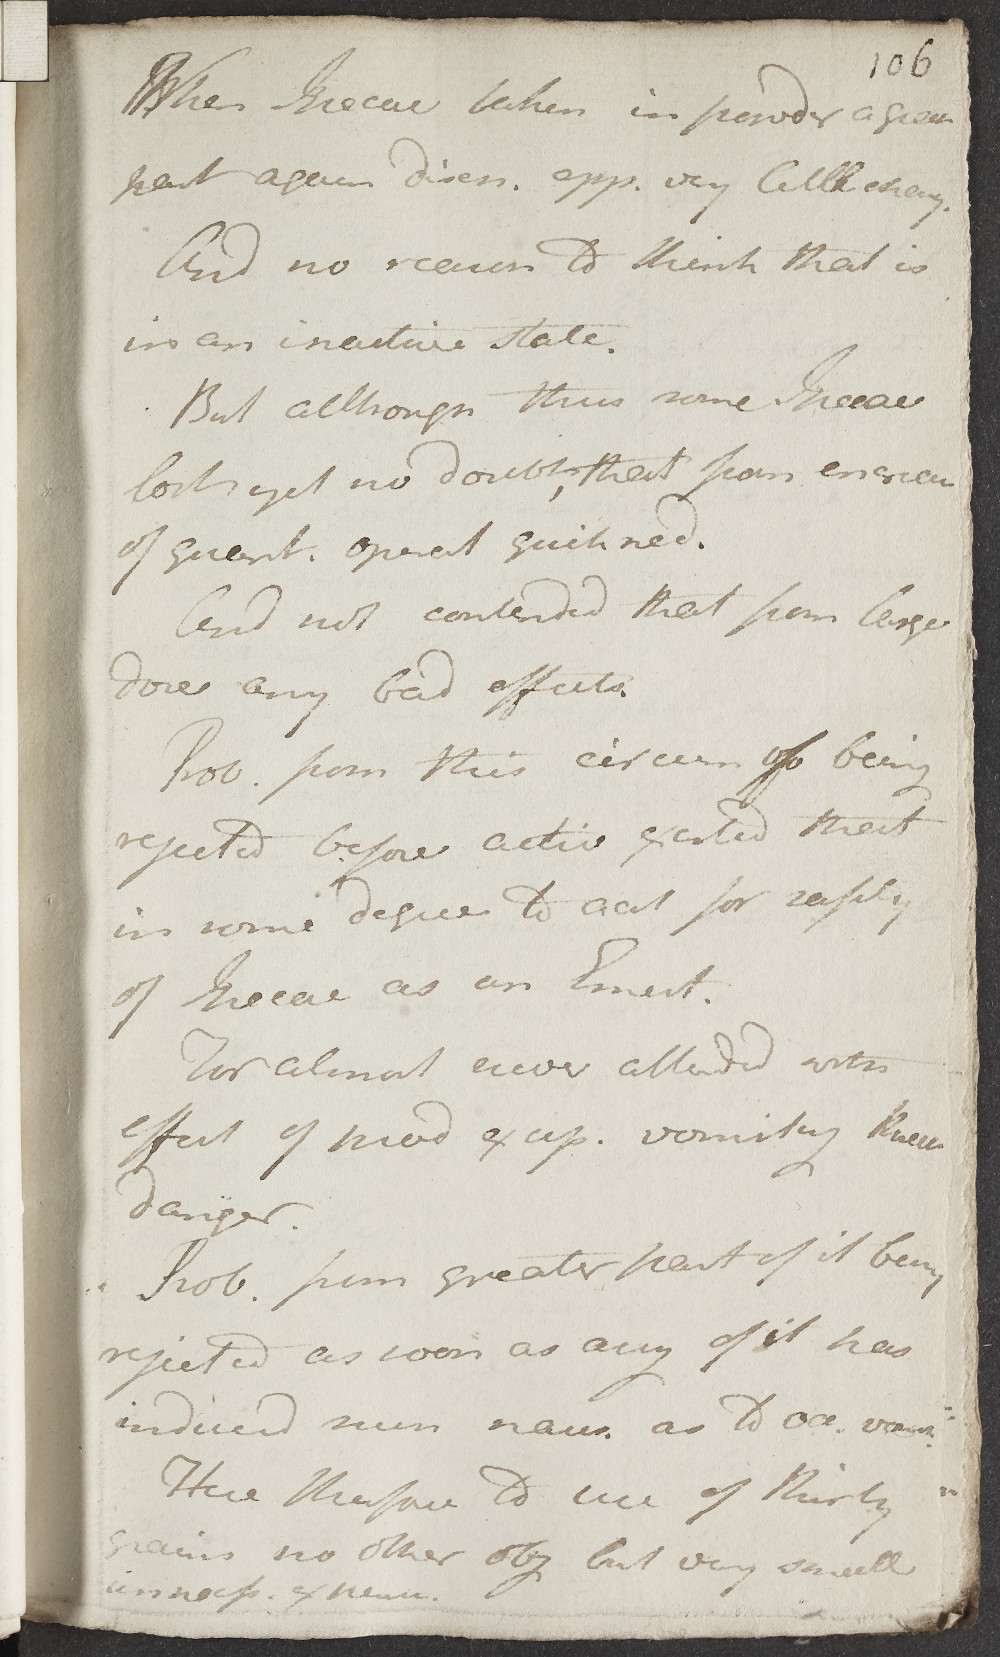 106
When Ipecac taken in powder a great
part again disch. app. very little chang.
And no reason to think that is
in an inactive state.
But although thus some Ipecac
lost yet no doubt, that from encrease
of quant. operat quickned.
And not contended that from large
dose any bad effects.
Prob. from this circum of being
rejected before activ exerted that
in some degree to acct for safety
of Ipecac as an Emet.
For almost never attended with
effect of med except. vomiting
danger.
Prob. from greater part of it being
rejected as soon as any of it has
induced naus. as to occ. vomit.
Here therefore to use of thirty
grains no other obj but very small
unnecess. expence.